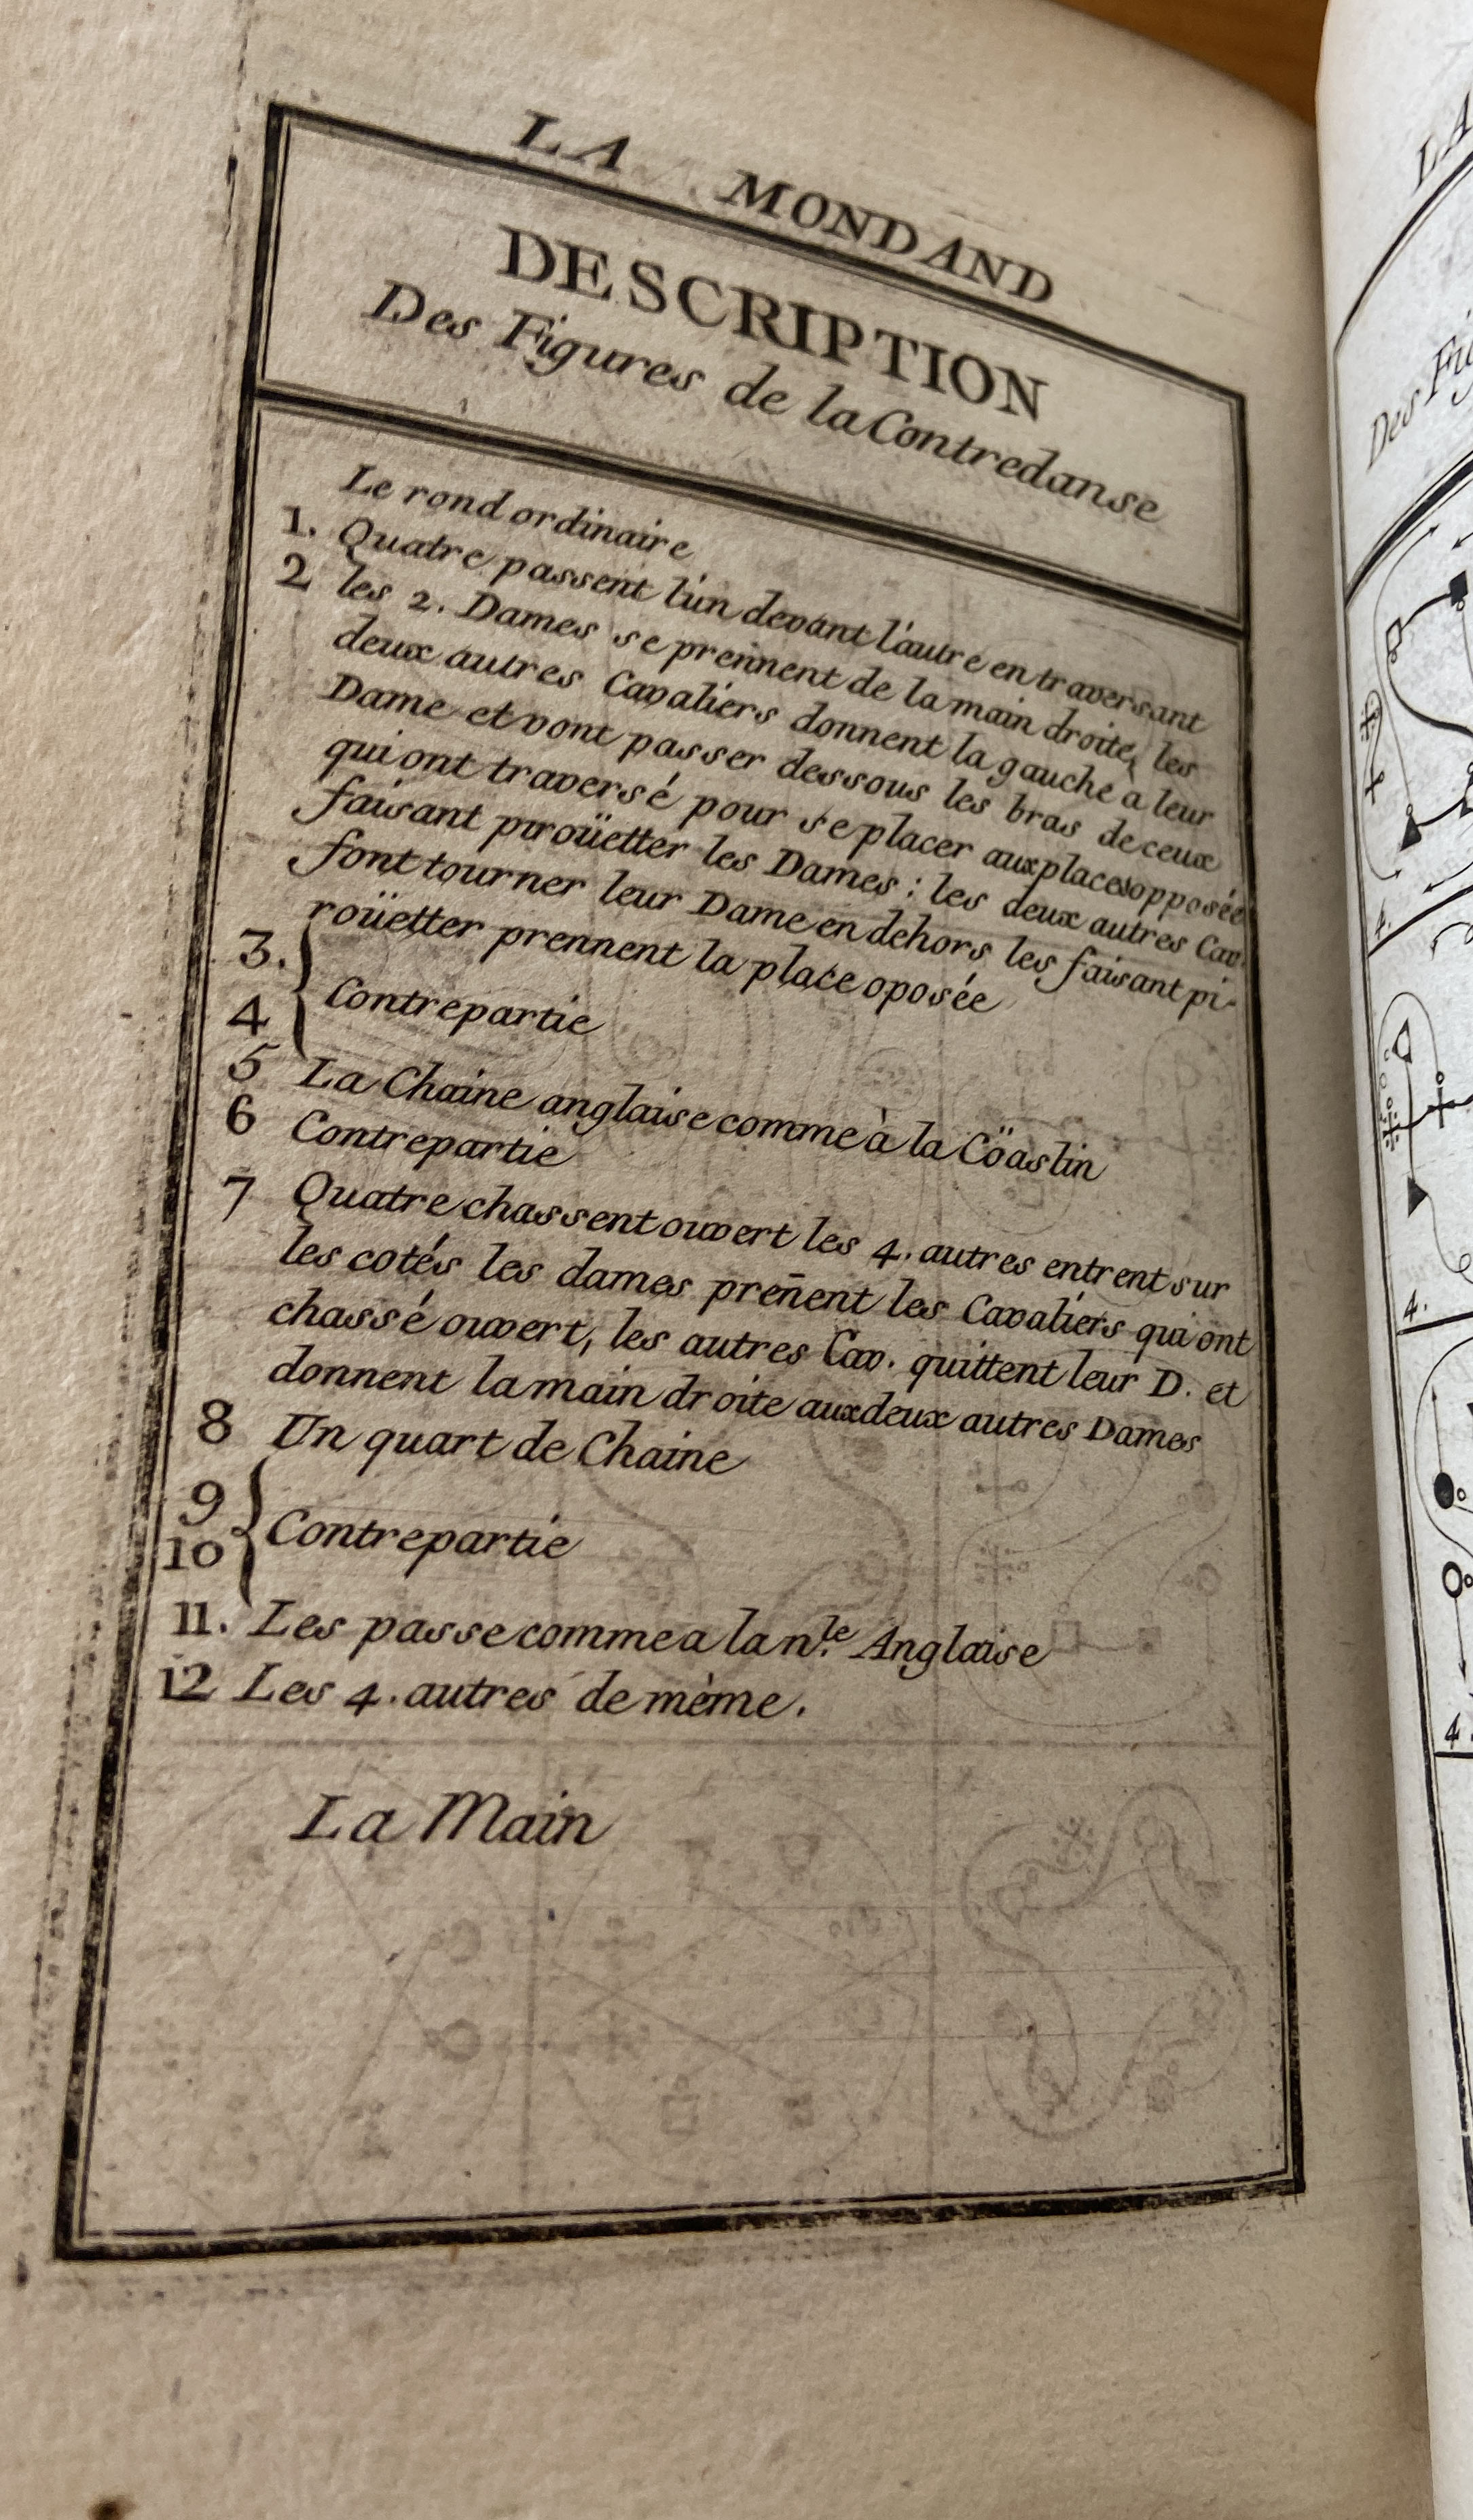 LA MONDAND
DESCRIPTION
Des Figures de la Contredanse
Le rond ordinaire
1. Quatre passent l'un devant l'autre en traversant
2 les 2. Dames se prennent de la main droite, les
deux autres Cavaliers donnent la gauche a leur
Dame et vont passer dessous les bras de ceux
qui ont traversé pour se placer aux places opposée
faisant piroüetter les Dames : les deux autres Cav.
font tourner leur Dame en dehors les faisant pi-
roüetter prennent la place oposée
3. 4 } Contrepartie
5 La Chaine anglaise comme à la Cöaslin
6 Contrepartie
7 Quatre chassent ouvert les 4. autres entrent sur
les cotés les dames prēnent les Cavaliers qui ont
chassé ouvert, les autres Cav. quittent leur D. et
donnent la main droite aux deux autres Dames
8 Un quart de Chaine
9 10 } Contrepartie
11. Les passe comme a la n.le Anglaise
12 Les 4. autres de mème.
La Main
LA
Des
4.
4.
4.